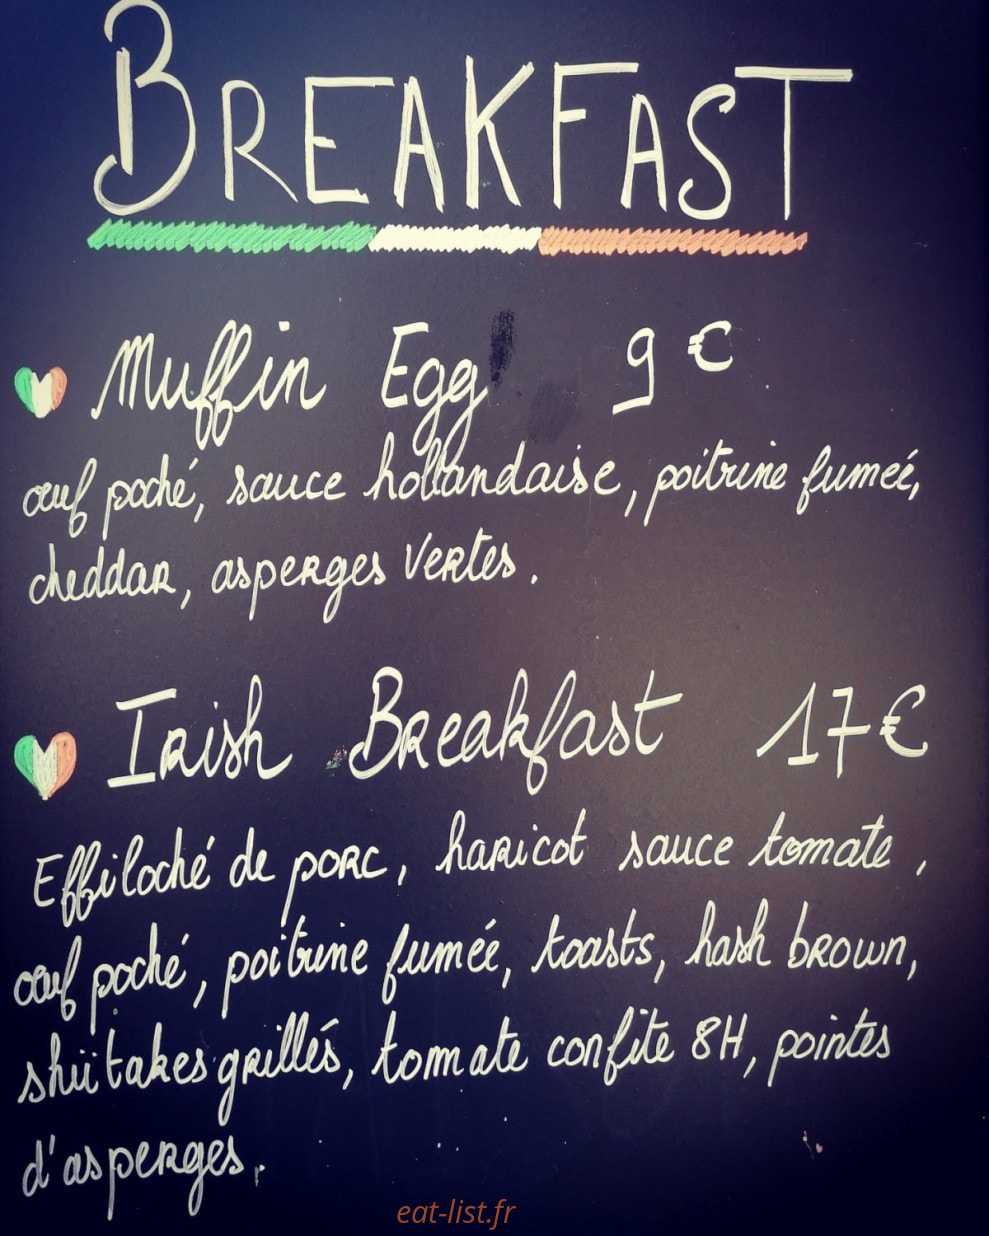 BREAKFAST
Muffin Egg 9 €
œuf poché, sauce hollandaise, poitrine fumeé,
cheddar, asperges vertes.
Irish Breakfast 17 €
Effiloché de porc, haricot sauce tomate,
œuf poché, poitrine fumée, toasts, hash brown,
shiitakes grillés, tomate confite 8H, pointes
d'asperges.
eat-list.fr